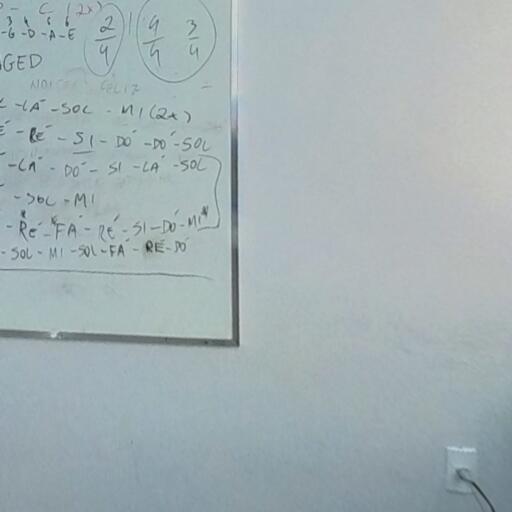 - C (2x)
3 4 5 6
-G-D-A-E
2/4 4/4 3/4
AGED
NOITE FELIZ
-LÁ-SOL-MI (2x)
-RÉ-SI-DÓ-DÓ-SOL
-LÁ-DÓ-SI-LÁ-SOL
-SOL-MI
-RÉ-FÁ-RÉ-SI-DÓ-MI
-SOL-MI-SOL-FÁ-RÉ-DÓ